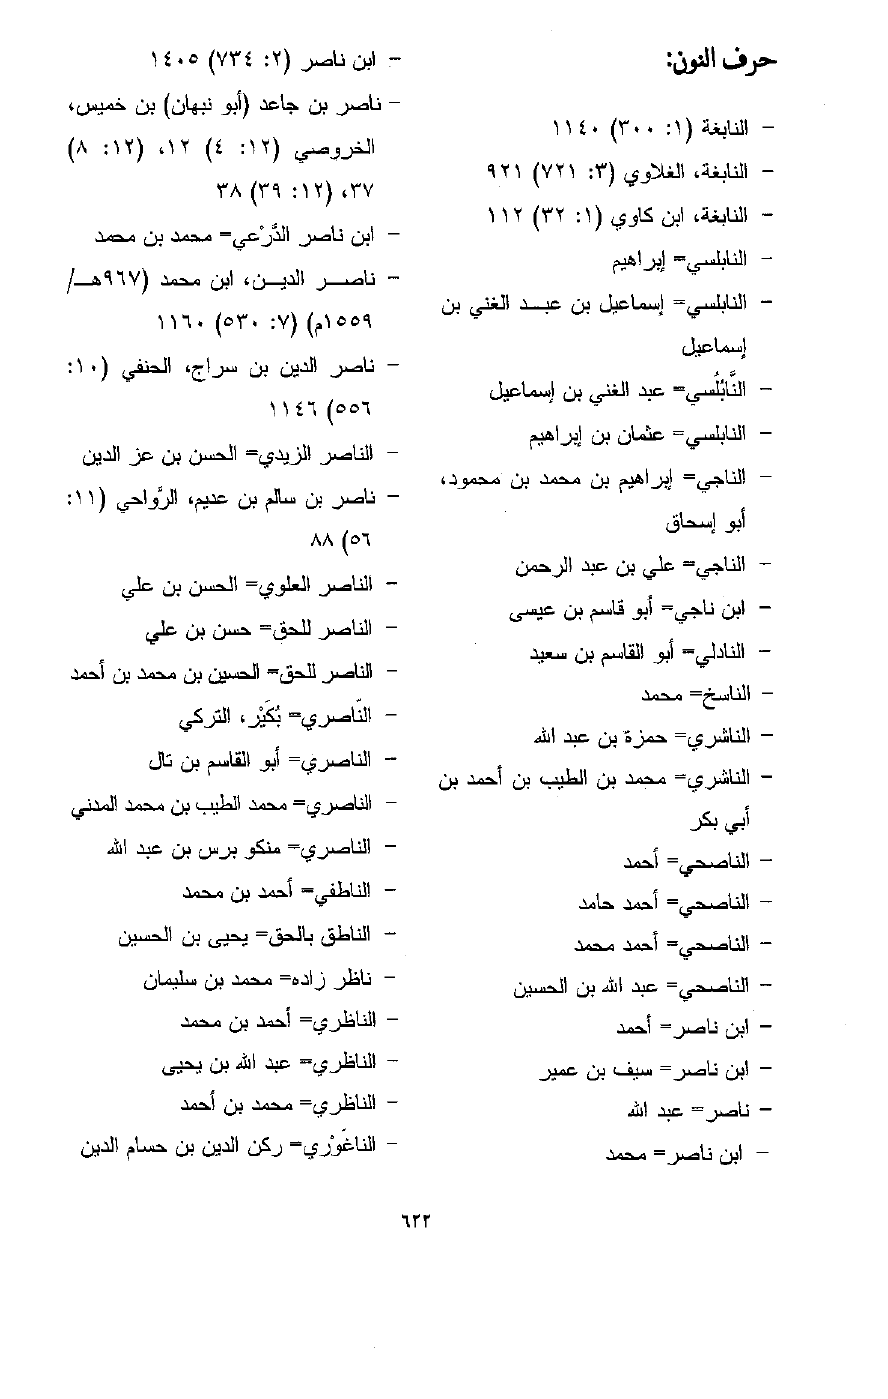 حرف النون:
- النابغة (١: ٣٠٠) ١١٤٠
- النابغة، الغلاوي (٣: ٧٢١) ٩٢١
- النابغة، ابن كاوي (١: ٣٢) ١١٢
- النابلسي= إبراهيم
- النابلسي= إسماعيل بن عبد الغني بن
إسماعيل
- النَّابُلُسي= عبد الغني بن إسماعيل
- النابلسي= عثمان بن إبراهيم
- الناجي= إبراهيم بن محمد بن محمود،
أبو إسحاق
- الناجي= علي بن عبد الرحمن
- ابن ناجي= أبو قاسم بن عيسى
- النادلي= أبو القاسم بن سعيد
- الناسخ= محمد
- الناشري= حمزة بن عبد الله
- الناشري= محمد بن الطيب بن أحمد بن
أبي بكر
- الناصحي= أحمد
- الناصحي= أحمد حامد
- الناصحي= أحمد محمد
- الناصحي= عبد الله بن الحسين
- ابن ناصر= أحمد
- ابن ناصر= سيف بن عمير
- ناصر= عبد الله
- ابن ناصر= محمد
- ابن ناصر (٢: ٧٣٤) ١٤٠٥
- ناصر بن جاعد (أبو نبهان) بن خميس،
الخروصي (١٢: ٤) ١٢، (١٢: ٨)
٣٧، (١٢: ٣٩) ٣٨
- ابن ناصر الدَّرْعي= محمد بن محمد
- ناصـر الديـن، ابن محمد (٩٦٧هـ/
١٥٥٩م) (٧: ٥٣٠) ١١٦٠
- ناصر الدين بن سراج، الحنفي (١٠:
٥٥٦) ١١٤٦
- الناصر الزيدي= الحسن بن عز الدين
- ناصر بن سالم بن عديم، الرَّواحي (١١:
٥٦) ٨٨
- الناصر العلوي= الحسن بن علي
- الناصر للحق= حسن بن علي
- الناصر للحق= الحسين بن محمد بن أحمد
- النَّاصري= بُكَيْر، التركي
- الناصري= أبو القاسم بن تال
- الناصري= محمد الطيب بن محمد المدني
- الناصري= منكو برس بن عبد الله
- الناطفي= أحمد بن محمد
- الناطق بالحق= يحيى بن الحسين
- ناظر زاده= محمد بن سليمان
- الناظري= أحمد بن محمد
- الناظري= عبد الله بن يحيى
- الناظري= محمد بن أحمد
- الناغَوْري= ركن الدين بن حسام الدين
٦٢٢